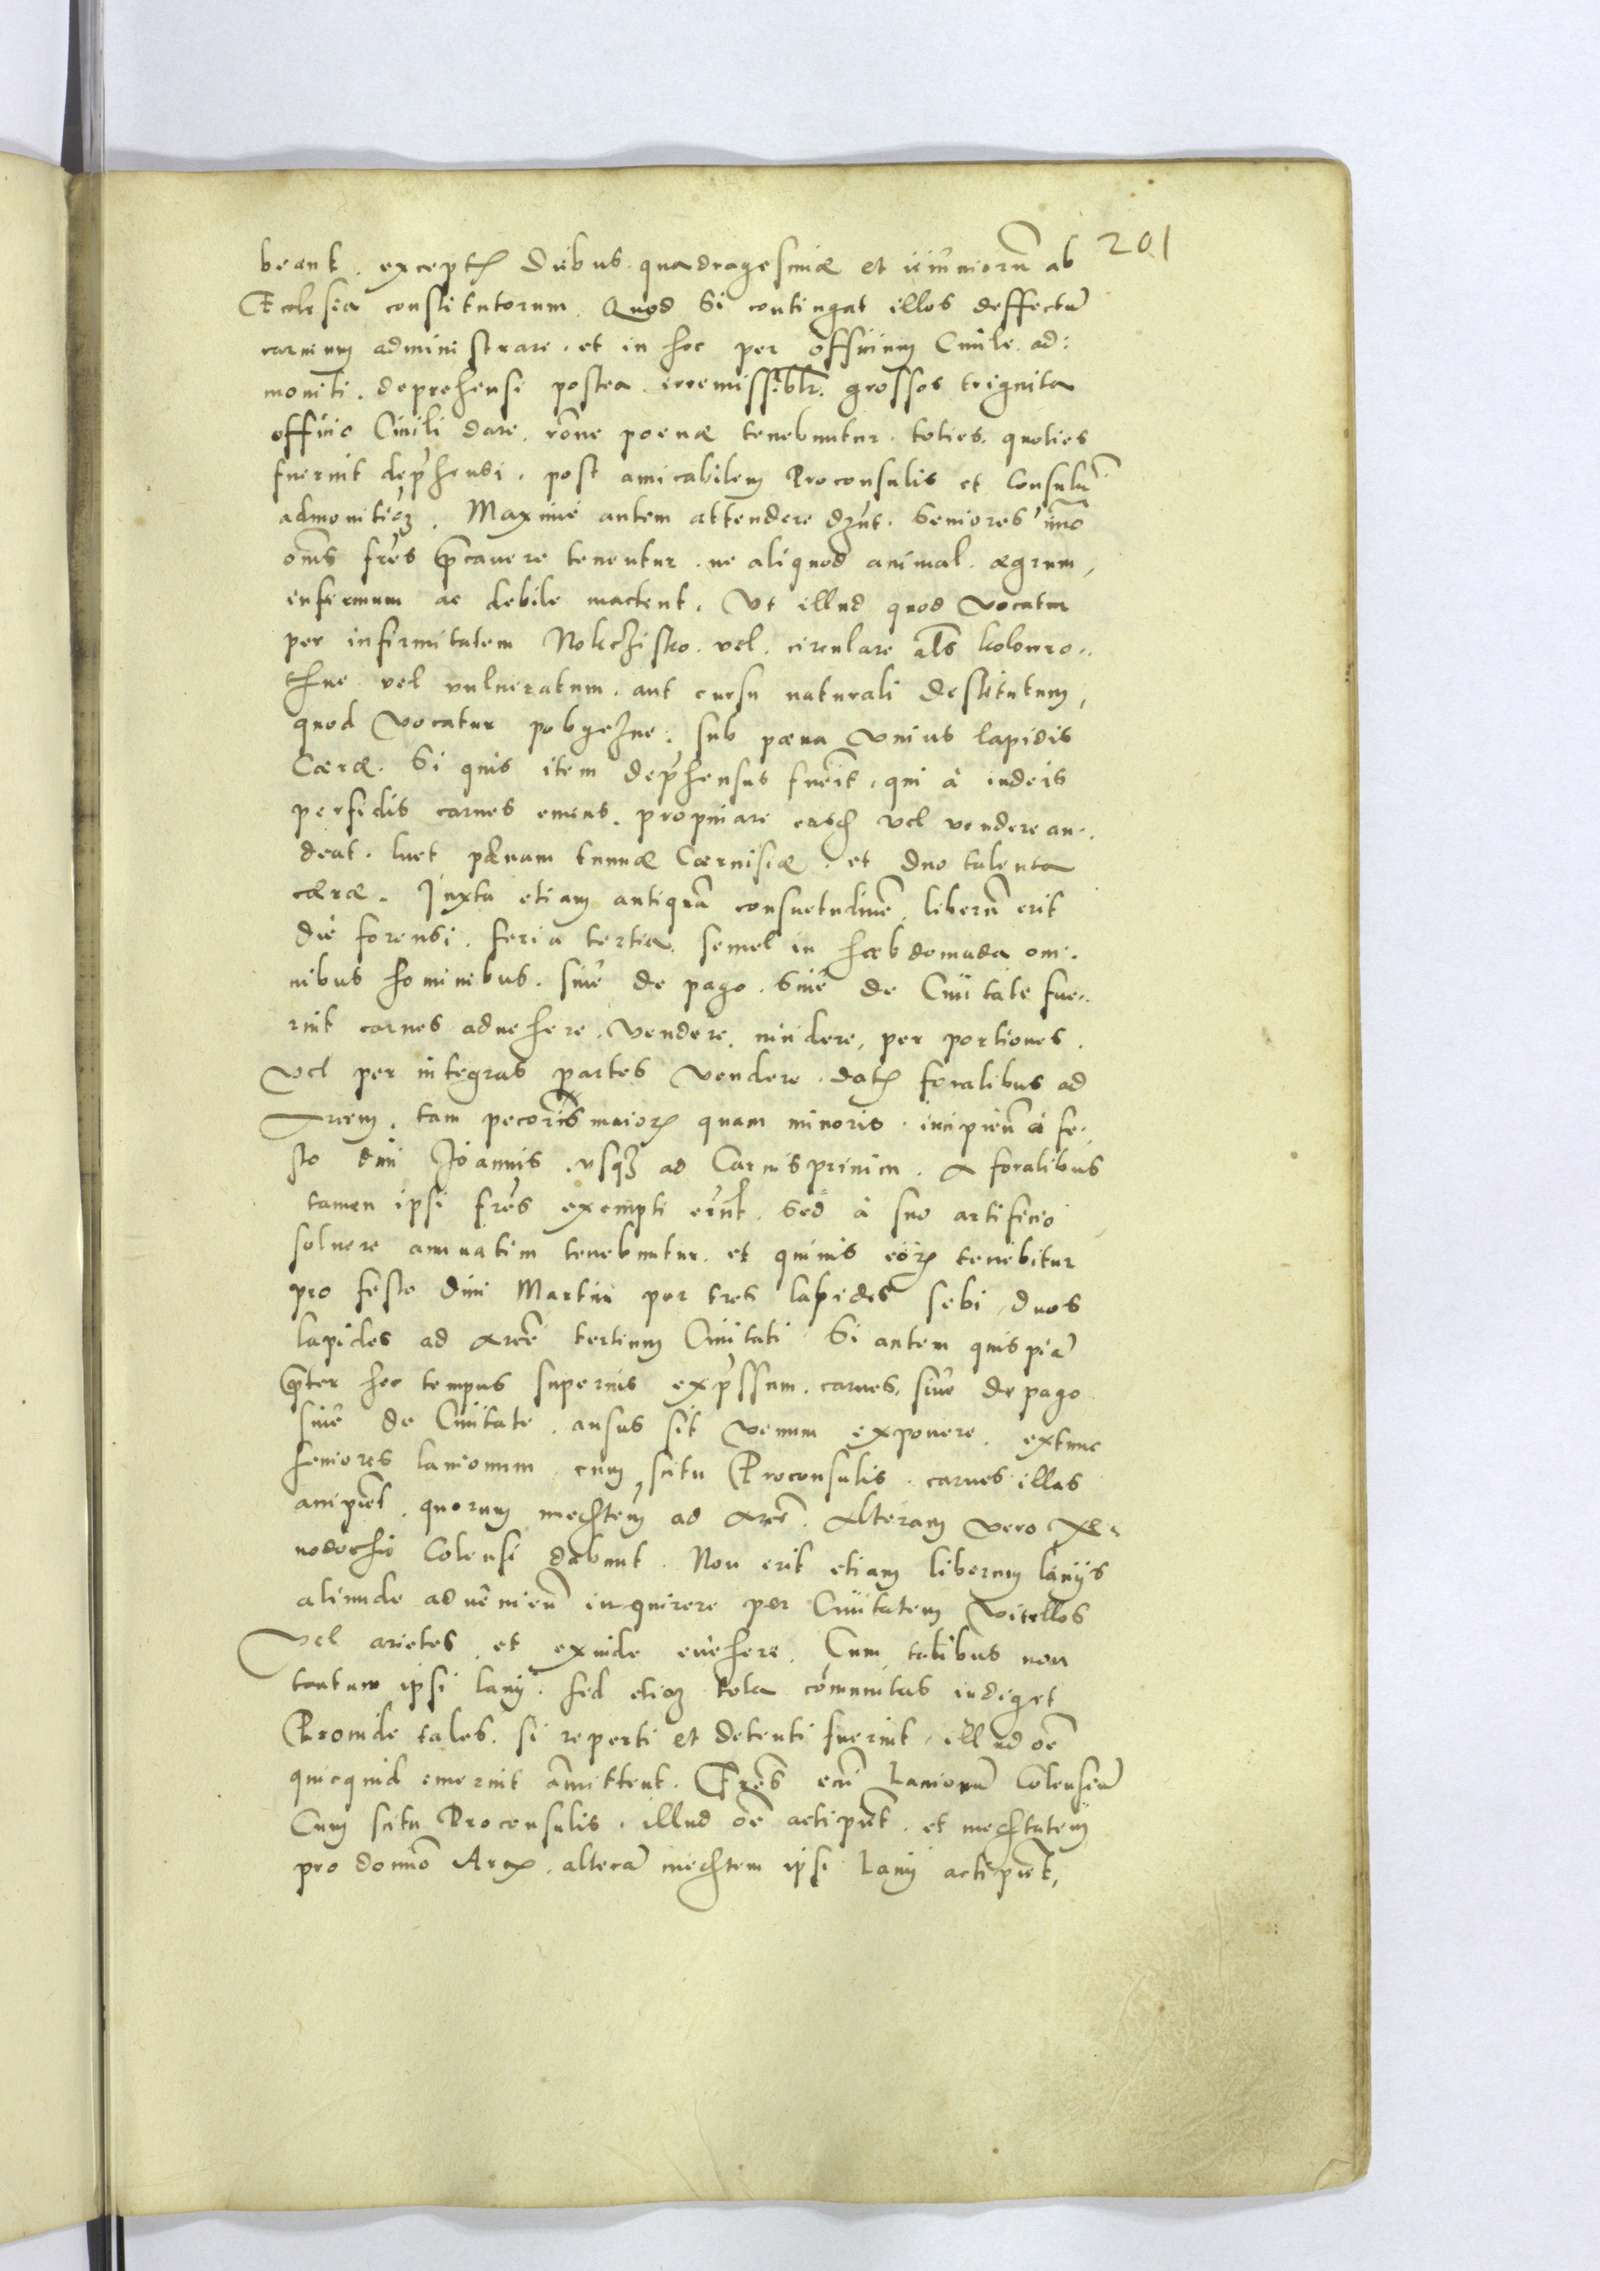 201
beant. exceptꝭ diebus quadragesimæ et ieiuniorū ab
Ecclesia constitutorum. Quod si contingat illos deffectū
carnium administrare. et in hoc per officium Ciuile ad:
moniti. deprehensi postea irremissiblr̄. grossos triginta
officio Ciuili dare. rōne poenæ tenebuntur. toties. quoties
fuerint dep̄hensi. post amicabilem Proconsulis et Consulū
admonitioꝫ. Maxime autem attendere dꝫnt. Seniores imo
om̄s fr̄es p̄cauere tenentur. ne aliquod animal. ægrum,
infirmum ac debile mactent. Vt illud quod vocatur
per infirmitatem Nokcżisko. vel. circulare als kolowro..
thne vel vulneratum. aut cursu naturali destitutum,
quod vocatur pobgezne. sub pæna vnius lapidis
Cæræ. Si quis item dep̄hensus fuerit. qui à iudeis
perfidis carnes emens. propinare easꝗ vel vendere au..
deat. luet pænam tunnæ Cæruisiæ. et duo talenta
cæræ. Iuxta etiam antiquā consuetudinē, liberū erit
die forensi. feria tertia. semel in hæbdomada om:
nibus hominibus. siue de pago. siue de Ciuitate fue..
rint carnes aduehere. vendere. incidere, per portiones.
vel per integras partes vendere. datꝭ foralibus ad
Arcem. tam pecoris maiorꝭ quam minoris. incipien̄ à fe..
sto diui Joannis. vsqꝫ ad Carnispriuiū. A foralibus
tamen ipsi fr̄es exempti erūt. sed à suo artificio
soluere annuatim tenebuntur. et quiuis eorꝭ tenebitur
pro festo diui Martini per tres lapides sebi, duos
lapides ad arcē tertium Ciuitati. Si autem quispiā
p̄ter hoc tempus superius exp̄ssum. carnes. siue de pago
siue de Ciuitate. ausus sit venum exponere. extunc
seniores lanionum cum scitu Proconsulis. carnes illas
accipiēt. quorum medietem̄ ad arcē. Alteram vero Xe..
nodochio Colensi dabunt. Non erit etiam liberum lanijs
aliunde aduenien̄ inquirere per Ciuitatem vitellos
vel arietes. et exinde euehere. Cum talibus non
tantum ipsi lanij. sed etiaꝫ tota communitas indiget
Proinde tales. si reperti et detenti fuerint. illud oē
quicquid emerint āmittent. Fr̄es Lanionū Colensiū
Cum scitu Proconsulis. illud oē accipiēt. et medietatem
pro domō Arcꝭ. alterā medietem ipsi Lanij accipiēt,